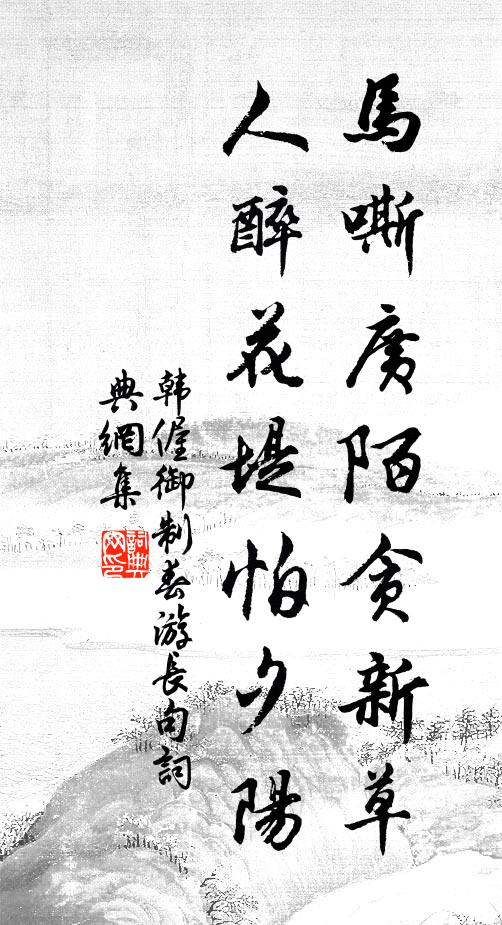 馬嘶廣陌貪新草
人醉花堤怕夕陽
韩偓御制春游長句詞
典網集
詞典
网印